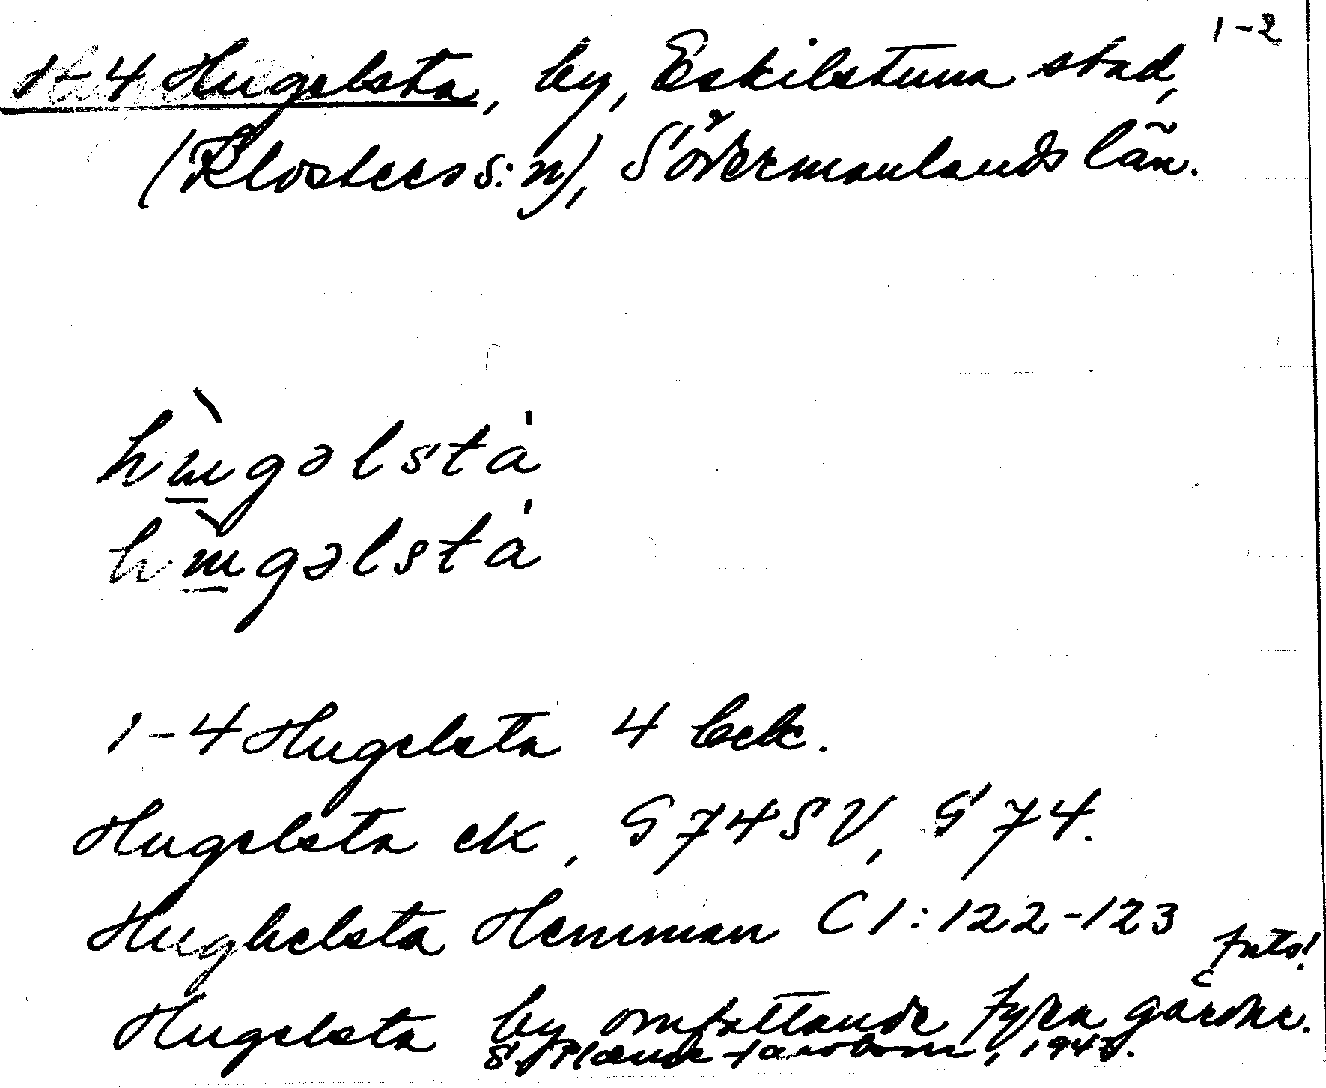 1-2
1-4 Hugelsta, by, Eskilstuna stad,
(Klosters s:n), Södermanlands län.
hɯ̀gəlstȧ
hɯ̀gəlstȧ
1-4 Hugelsta 4 bek.
Hugelsta ek, G 74 SV, G 74.
Hughelsta Hemman C 1:122-123
foto!
Hugelsta by omfattande fyra gårdar.
1943.